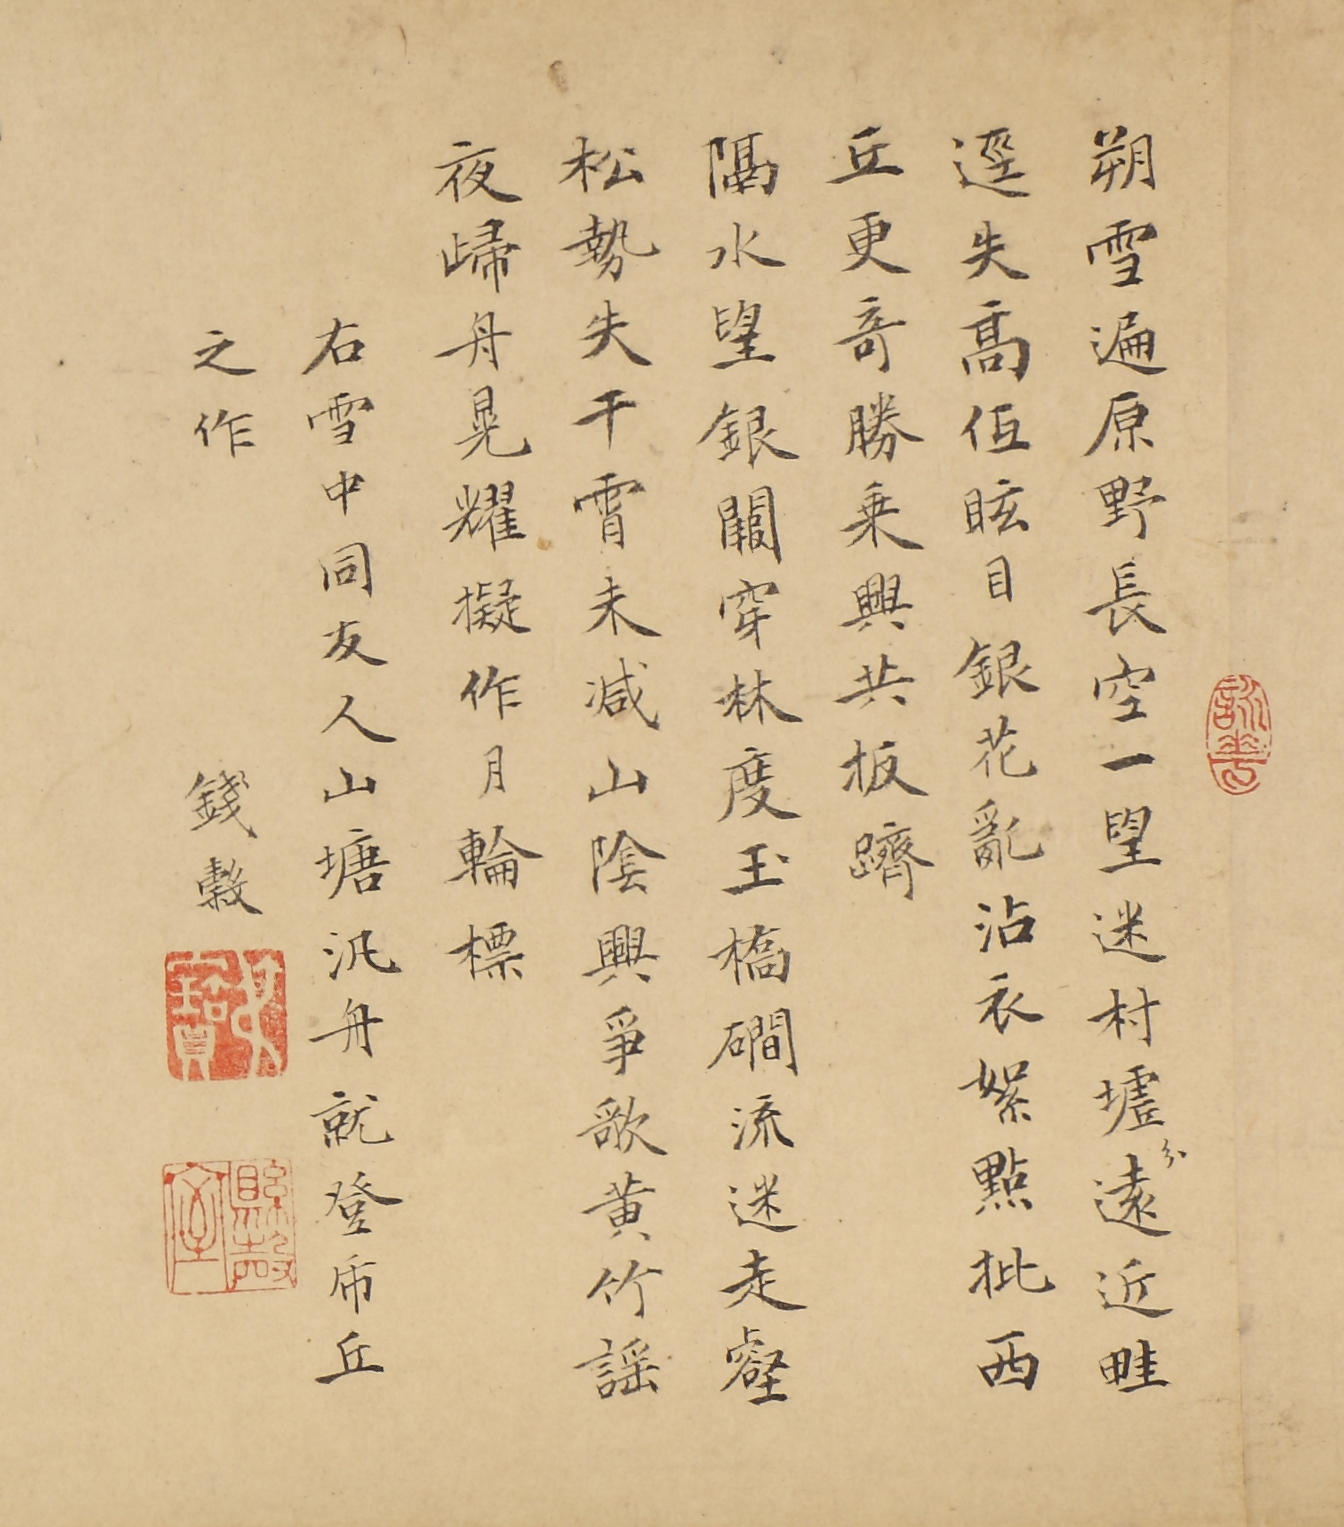 朔雪遍原野長空一望迷村墟遠近畦
逕失高低眩目銀花亂沾衣絮點批西
丘更奇勝乗興共扳躋
隔水望銀闕穿林度玉橋磵流迷走壑
松勢失干霄未减山陰興爭歌黄竹謡
夜歸舟晃耀擬作月輪標
右雪中同友人山塘汎舟就登虎丘
之作
錢榖